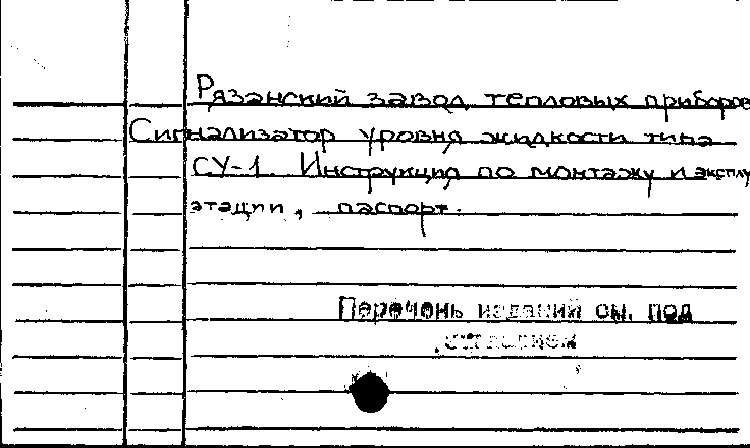 Рязанский завод тепловых приборов
Сигнализатор уровня жидкости типа
СУ-1. Инструкция по монтажу и эксплу
атации, паспорт.
Перечень изданий см. под